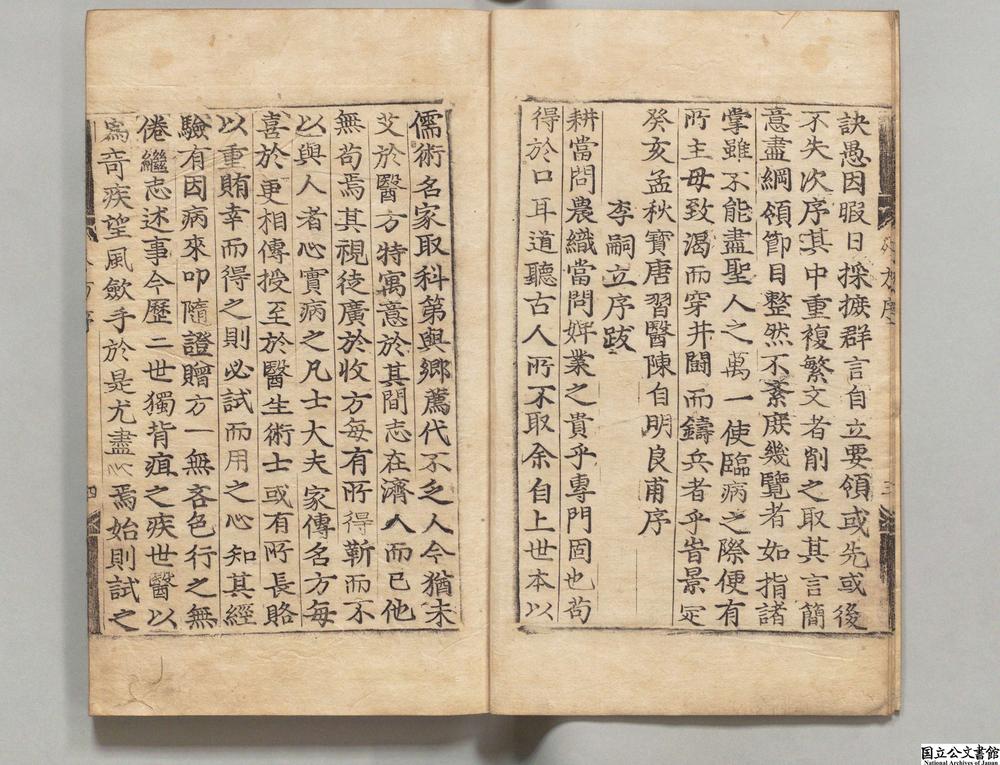 訣愚因暇日採摭群言自立要領或先或後
不失次序其中重複繁文者削之取其言簡
意盡綱領節目整然不紊庶幾覽者如指諸
掌雖不能盡聖人之萬一使臨病之際便有
所主毋致渴而穿井鬪而鑄兵者乎旹景定
癸亥孟秋寶唐習醫陳自明良甫序
李嗣立序跋
耕當問農織當問婢業之貴乎專門固也苟
得於口耳道聽古人所不取余自上世本以
儒術名家取科第與鄉薦代不乏人今猶未
艾於醫方特寓意於其間志在濟人而已他
無苟焉其視徒廣於收方每有所得靳而不
以與人者心實病之凡士大夫家傳名方每
喜於更相傳授至於醫生術士或有所長賂
以重賄幸而得之則必試而用之心知其經
驗有因病來叩隨證贈方一無吝色行之無
倦繼志述事今歷二世獨背疽之疾世醫以
爲奇疾望風斂手於是尤盡心焉始則試之
序
三
序
四
国立公文書館
National Archives of Japan